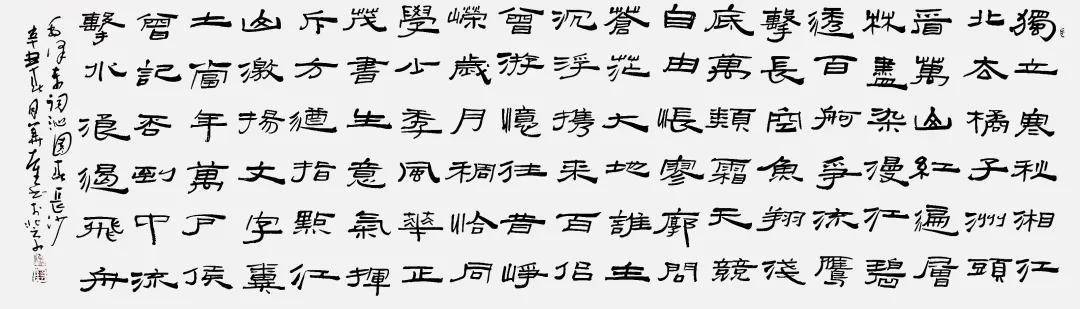 獨立寒秋湘江
北去橘子洲頭
看萬山紅遍層
林盡染漫江碧
透百舸爭流鷹
擊長空魚翔淺
底萬類霜天競
自由悵寥廓問
蒼茫大地誰主
沉浮携来百侣
曾游憶往昔崢
嶸歲月稠恰同
學少年風華正
茂書生意氣揮
斥方遒指點江
山激揚文字糞
土當年萬戶侯
曾記否到中流
擊水浪遏飛舟
毛澤東詞沁園春長沙
辛丑夏月